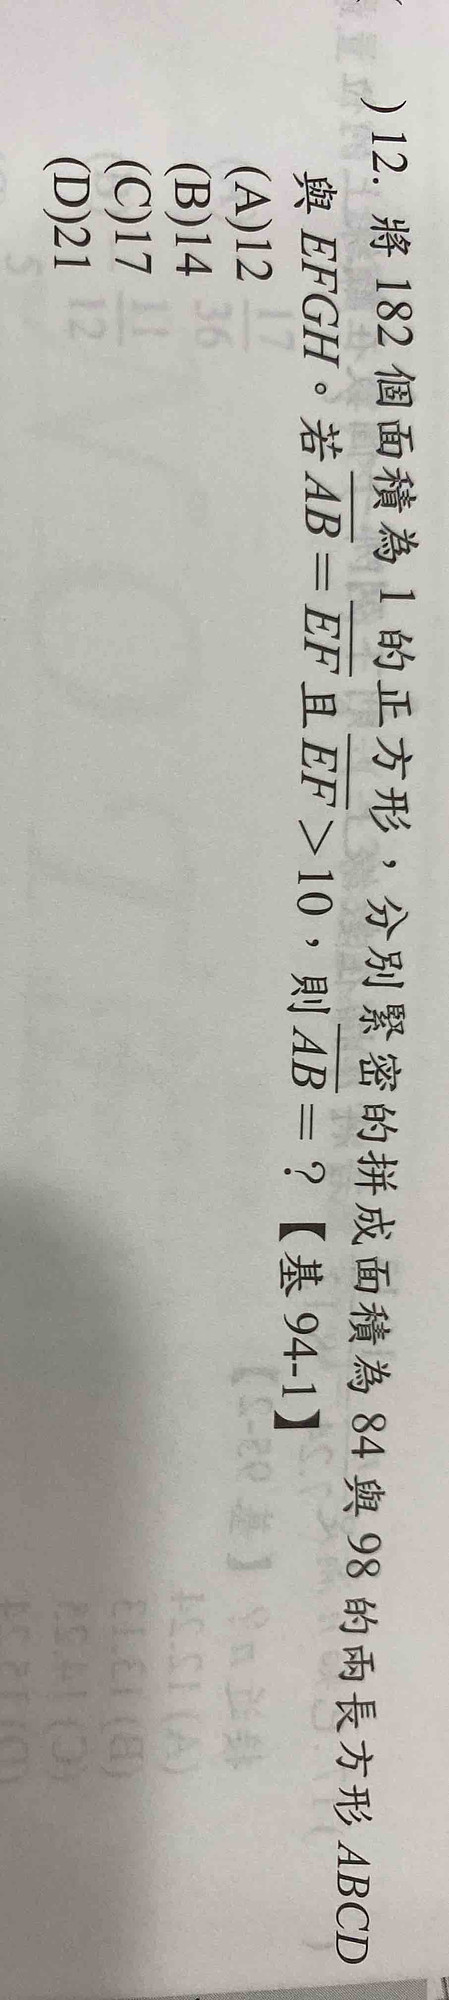 ) 12. 將 182 個面積為 1 的正方形，分別緊密的拼成面積為 84 與 98 的兩長方形 ABCD
與 EFGH。若 AB = EF 且 EF > 10，則 AB = ？【基 94-1】
(A)12
(B)14
(C)17
(D)21